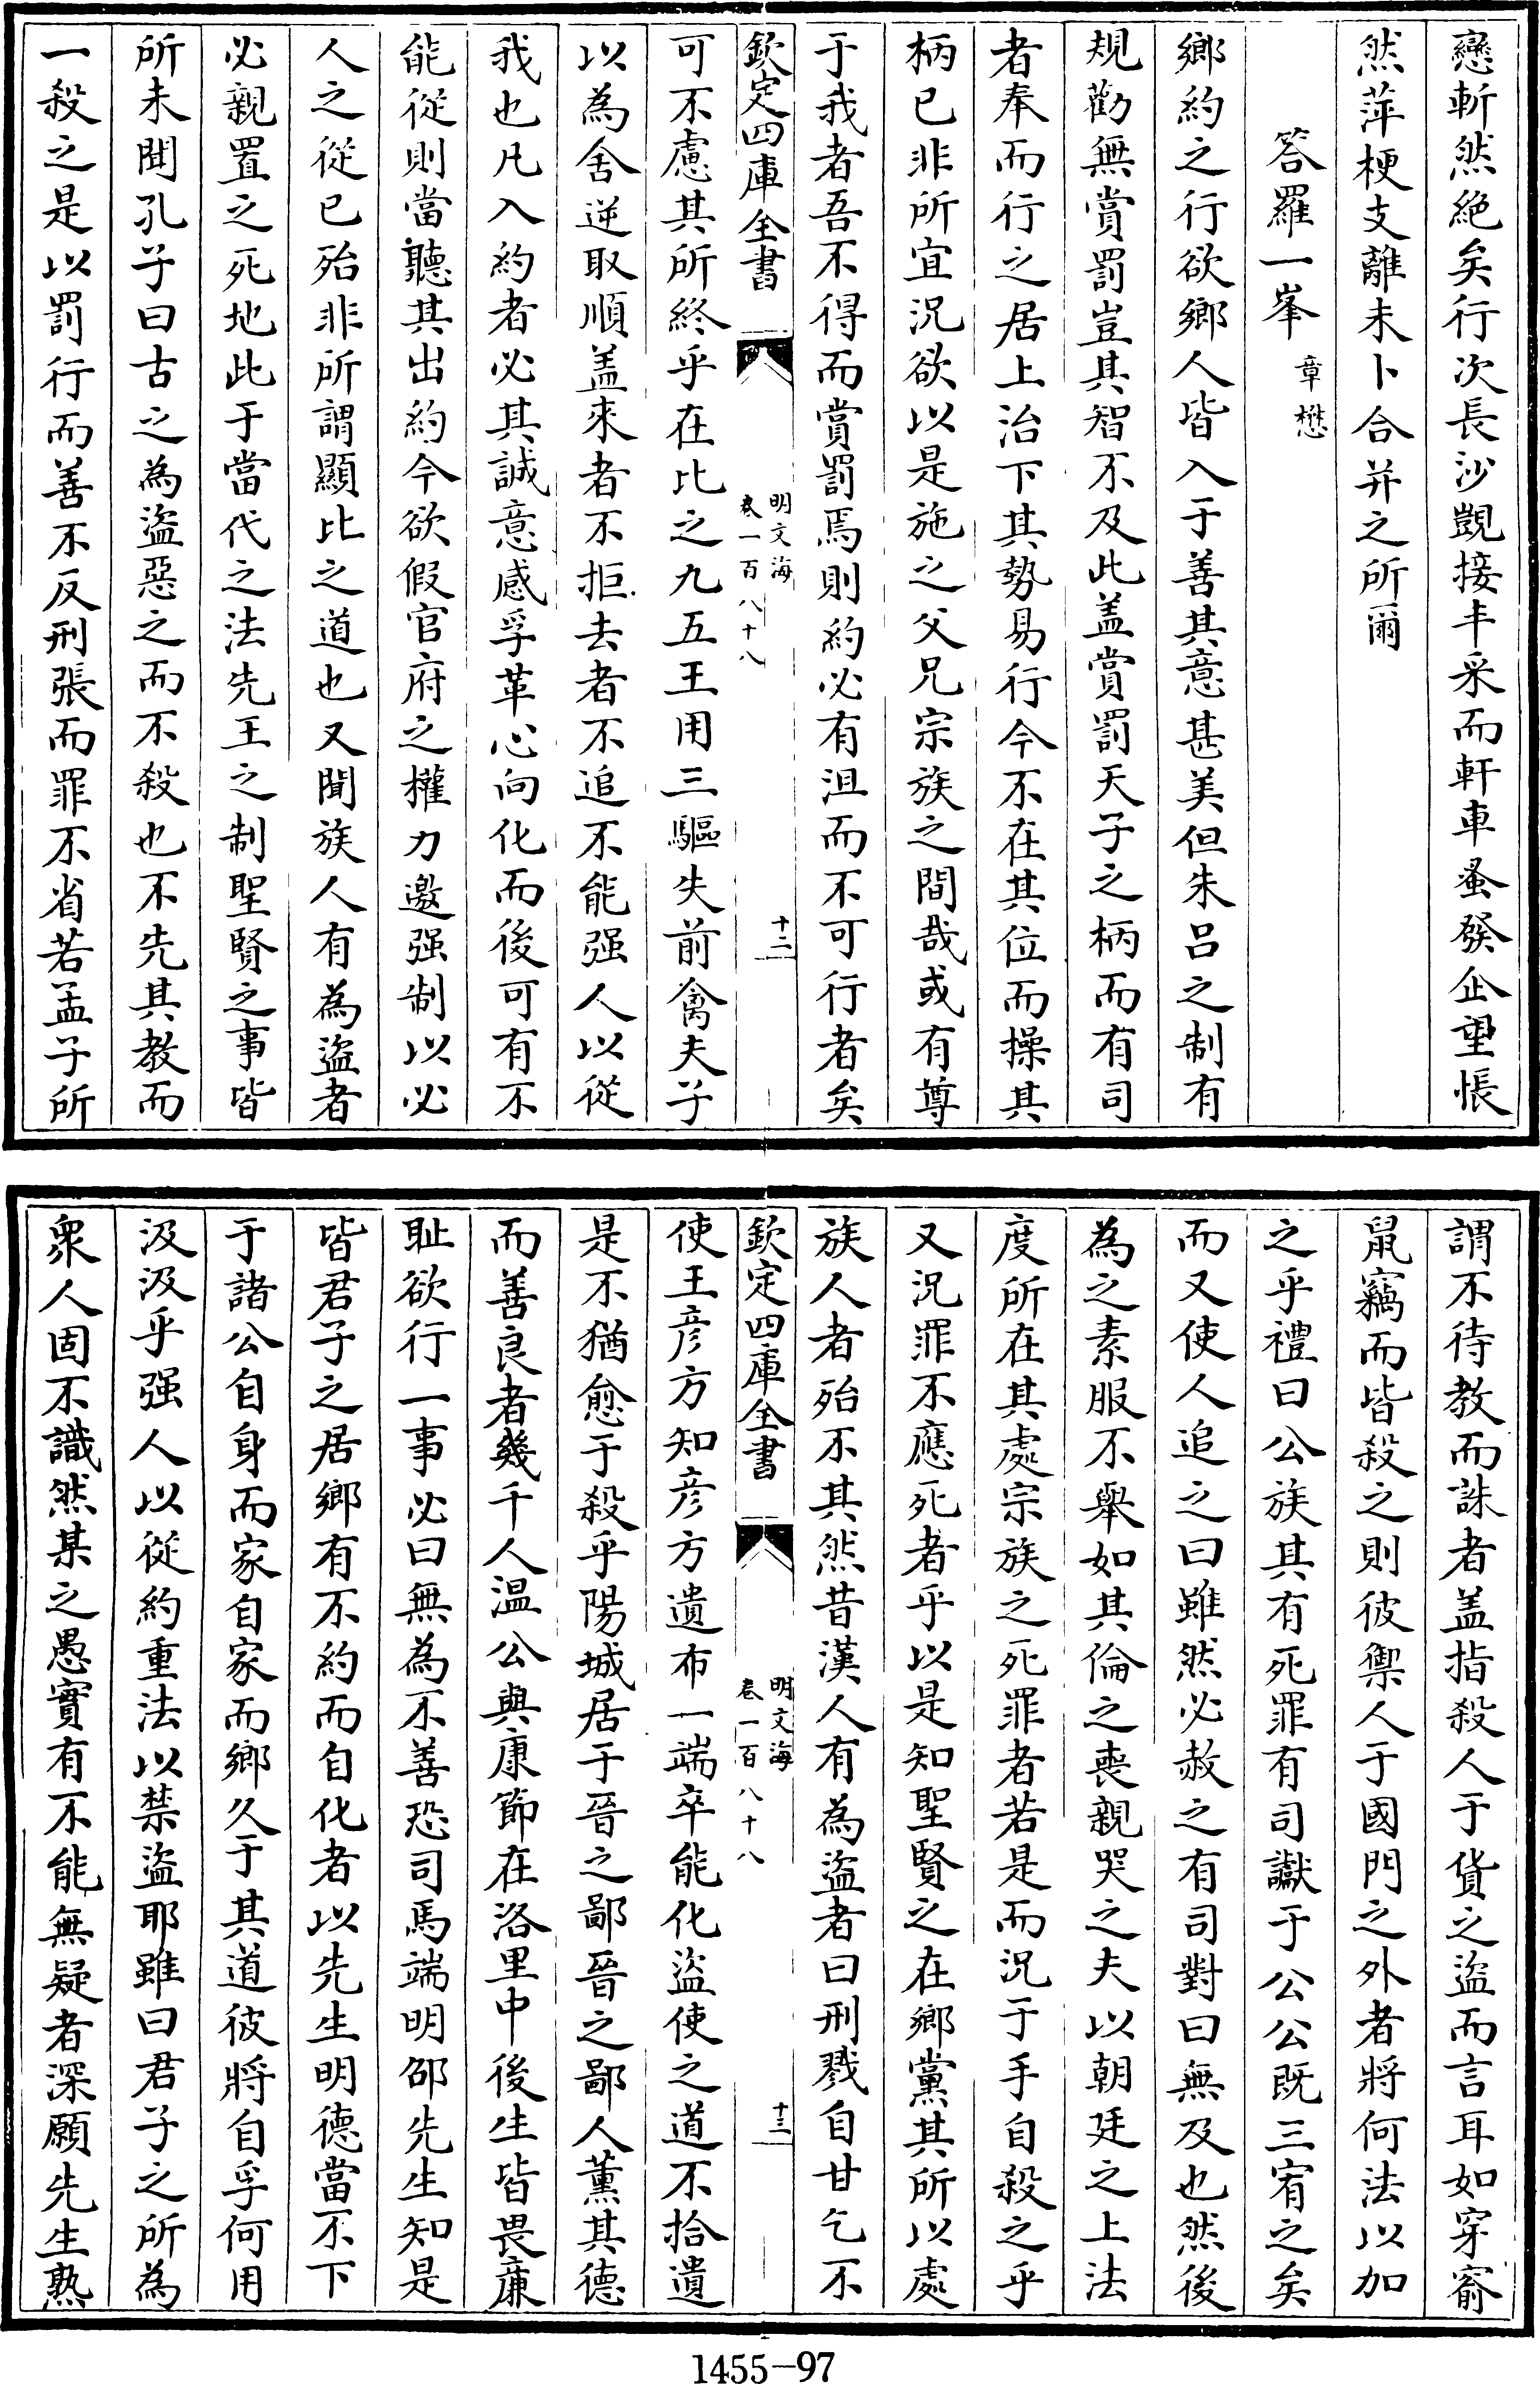 戀斬然絶矣行次長沙覬接丰采而軒車蚤發企望悵
然萍梗支離未卜合并之所爾
答羅一峯 章懋
鄉約之行欲鄉人皆入于善其意甚美但朱吕之制有
規勸無賞罰豈其智不及此盖賞罰天子之柄而有司
者奉而行之居上治下其勢易行今不在其位而操其
柄已非所宜況欲以是施之父兄宗族之間哉或有尊
于我者吾不得而賞罰焉則約必有沮而不可行者矣
欽定四庫全書 明文海 卷一百八十八 十二
可不慮其所終乎在比之九五王用三驅失前禽夫子
以為舍逆取順盖來者不拒去者不追不能强人以從
我也凡入約者必其誠意感孚革心向化而後可有不
能從則當聽其出約今欲假官府之權力邀强制以必
人之從已殆非所謂顯比之道也又聞族人有為盗者
必親置之死地此于當代之法先王之制聖賢之事皆
所未聞孔子曰古之為盗惡之而不殺也不先其教而
一殺之是以罰行而善不反刑張而罪不省若孟子所
謂不待教而誅者盖指殺人于貨之盗而言耳如穿窬
鼠竊而皆殺之則彼禦人于國門之外者將何法以加
之乎禮曰公族其有死罪有司讞于公公既三宥之矣
而又使人追之曰雖然必赦之有司對曰無及也然後
為之素服不舉如其倫之喪親哭之夫以朝廷之上法
度所在其處宗族之死罪者若是而況于手自殺之乎
又况罪不應死者乎以是知聖賢之在鄉黨其所以處
族人者殆不其然昔漢人有為盗者曰刑戮自甘乞不
欽定四庫全書 明文海 卷一百八十八 十三
使王彦方知彦方遺布一端卒能化盗使之道不拾遺
是不猶愈于殺乎陽城居于晉之鄙晉之鄙人薰其德
而善良者幾千人温公與康節在洛里中後生皆畏廉
耻欲行一事必曰無為不善恐司馬端明邵先生知是
皆君子之居鄉有不約而自化者以先生明德當不下
于諸公自身而家自家而鄉久于其道彼將自孚何用
汲汲乎强人以從約重法以禁盗耶雖曰君子之所為
衆人固不識然某之愚實有不能無疑者深願先生熟
1455-97